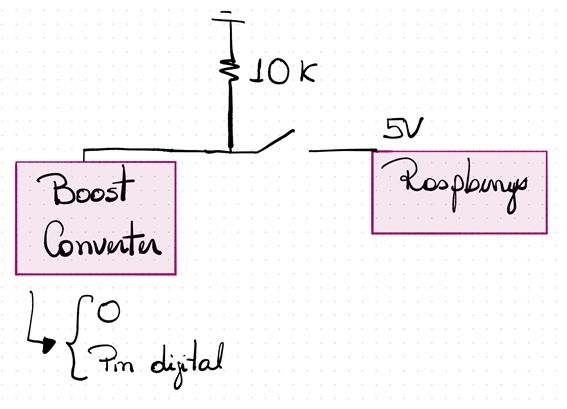 10K
5V
Boost
Converter
Raspberrys
0
Pin digital